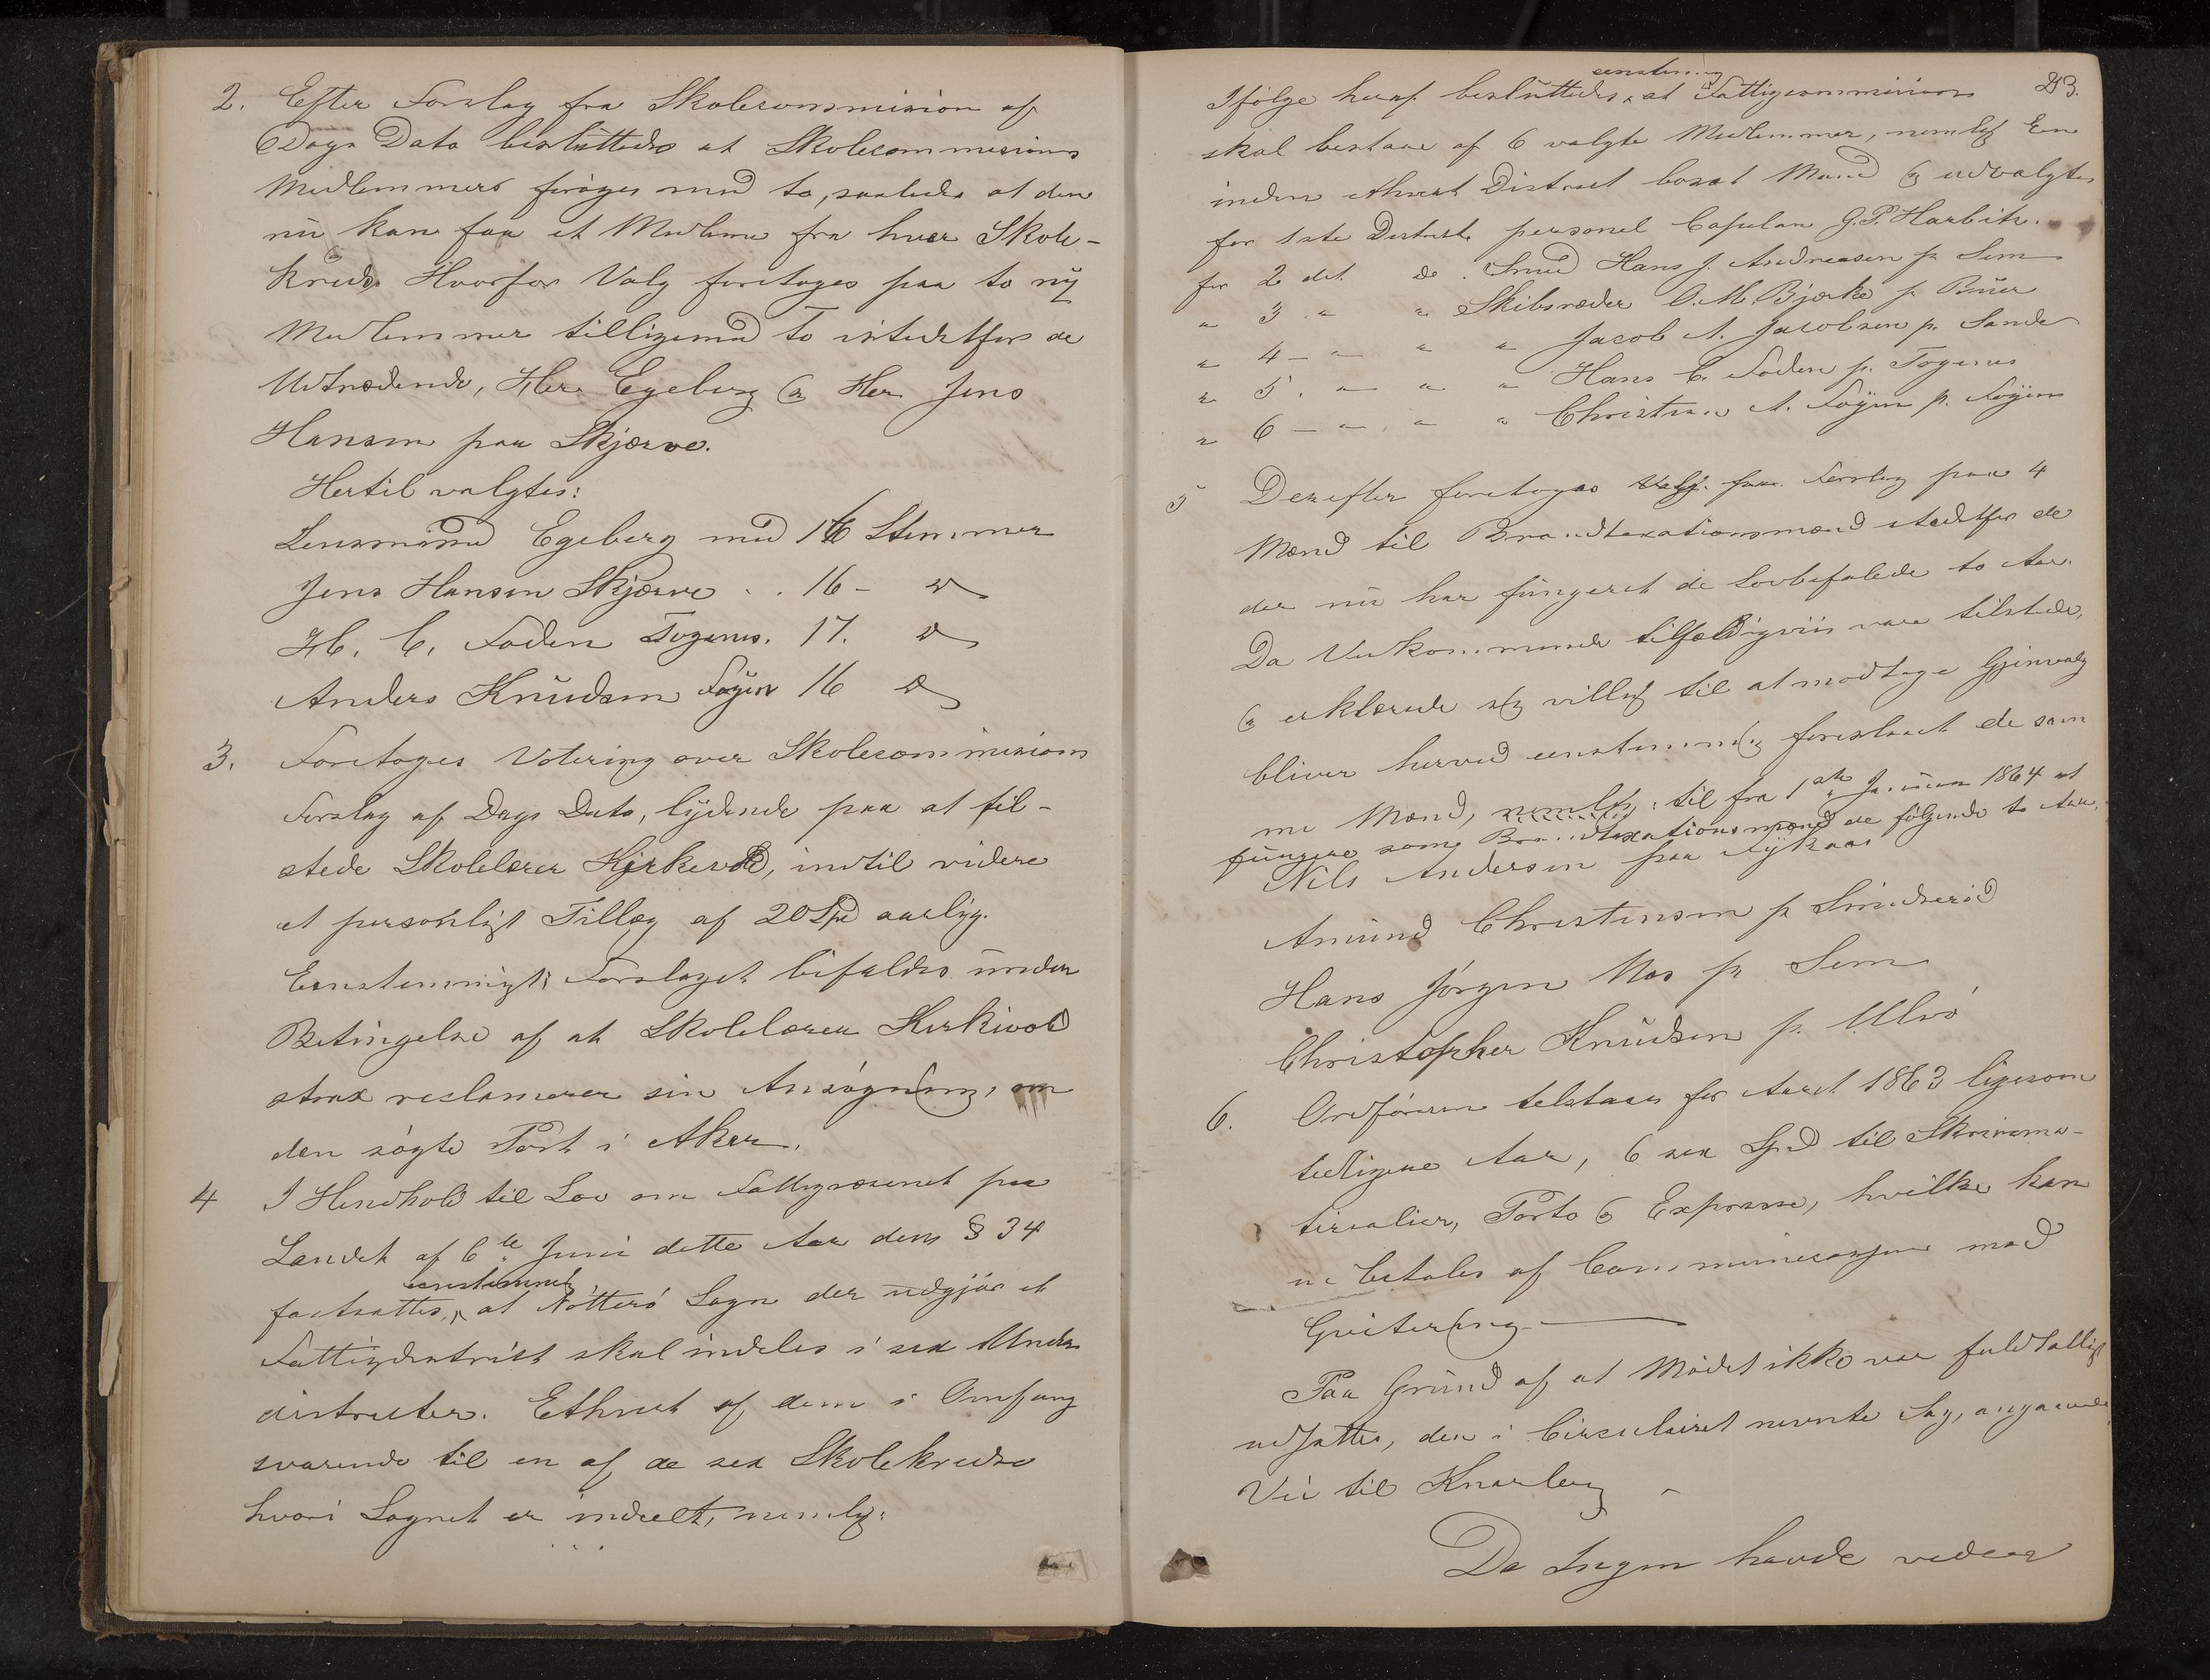 2. Efter Forslag fra Skolecommision af
Dags Dato besluttedes at Skolecommisions
Medlemmers forøges med to, saaledes at den
nu kan faa et Medlem fra hver Skole-
kreds. Hvorfor Valg foretoges paa to ny
Medlemmer tilligemed to istedetfor de
Udtrædende, Her Egeberg og Her Jens
Hansen paa Skjærve.
Hertil valgtes:
Lensmand Egeberg med 16 Stemmer
Jens Hansen Skjærve . . 16 - do
H. C. Foden Togenes. 17. do
Anders Knudsen Føyen 16 do
3. Foretoges Votering over Skolecommisions
Forslag af Dags Dato, lydende paa at til-
stede Skolelærer Kirkevold, indtil videre
et personligt Tillæg af 20 Spd aarlig.
Eenstemmigt Forslaget bifaldes under
Betingelse af at Skolelærer Kirkevold
strax reclamerer sin Ansøgning, om
den søgte Post i Aker.
4 I Henhold til Lov om Fattigvæsenet paa
Landet af 6te Juni dette Aar dens § 34
eenstemmig
fastsattes, at Nøtterø Sogn der udgjør et
Fattigdistrict skal indeles i sex Under
districter. Ethvert af dem i Omfang
svarende til en af de sex Skolekredse
hvori Sognet er indeelt, nemlig:
23.
eenstemmig
Ifølge heraf besluttedes, at Fattigcommission
skal bestaae af 6 valgte Medlemmer, nemlig Een
inden ethvert District bosat Mand og udvalgtes
for 1ste District personel Capelan G. P. Harbitz.
for 2det do. Smed Hans J. Andreasen p. Sem
" 3 " " Skibsræder O. M. Bjerke p. Buer
" 4 - " " " Jacob A. Jacobsen p. Sande
" 5. " " " Hans C. Foden p. Togenes
" 6 - " " " Christian A. Føyen p. Føyen
5 Derefter foretoges Valg paa Forslag paa 4
Mænd til Brandtaxationsmænd istedetfor de
der nu har fungeret de Lovbefalede to Aar.
Da Vedkommende tilfældigviis vare tilstede,
og erklærede sig villig til at modtage Gjenvalg
bliver herved eenstemmig foreslaaet de sam
me Mænd, nemlig: til fra 1ste Januar 1864 at
fungere som Brandtaxationsmænd de følgende to Aar.
Nils Andersen paa
Amund Christensen p. Smidsrød
Hans Jørgen Moe p. Sem
Christopher Knudsen p. Ulvø
6. Ordføreren tilstaaes for Aaret 1863 ligesom
tidligere Aar, 6 sex Spd til Skrivema-
tirealier, Porto og Expresse, hvilke kan
udbetales af Communecassen mod
Qvitering
Paa Grund af at Mødet ikke var fuldtallig
udsattes, den i Circulairet nevnte Sag, angaaende
Vei til Knarberg
Da Ingen havde videre